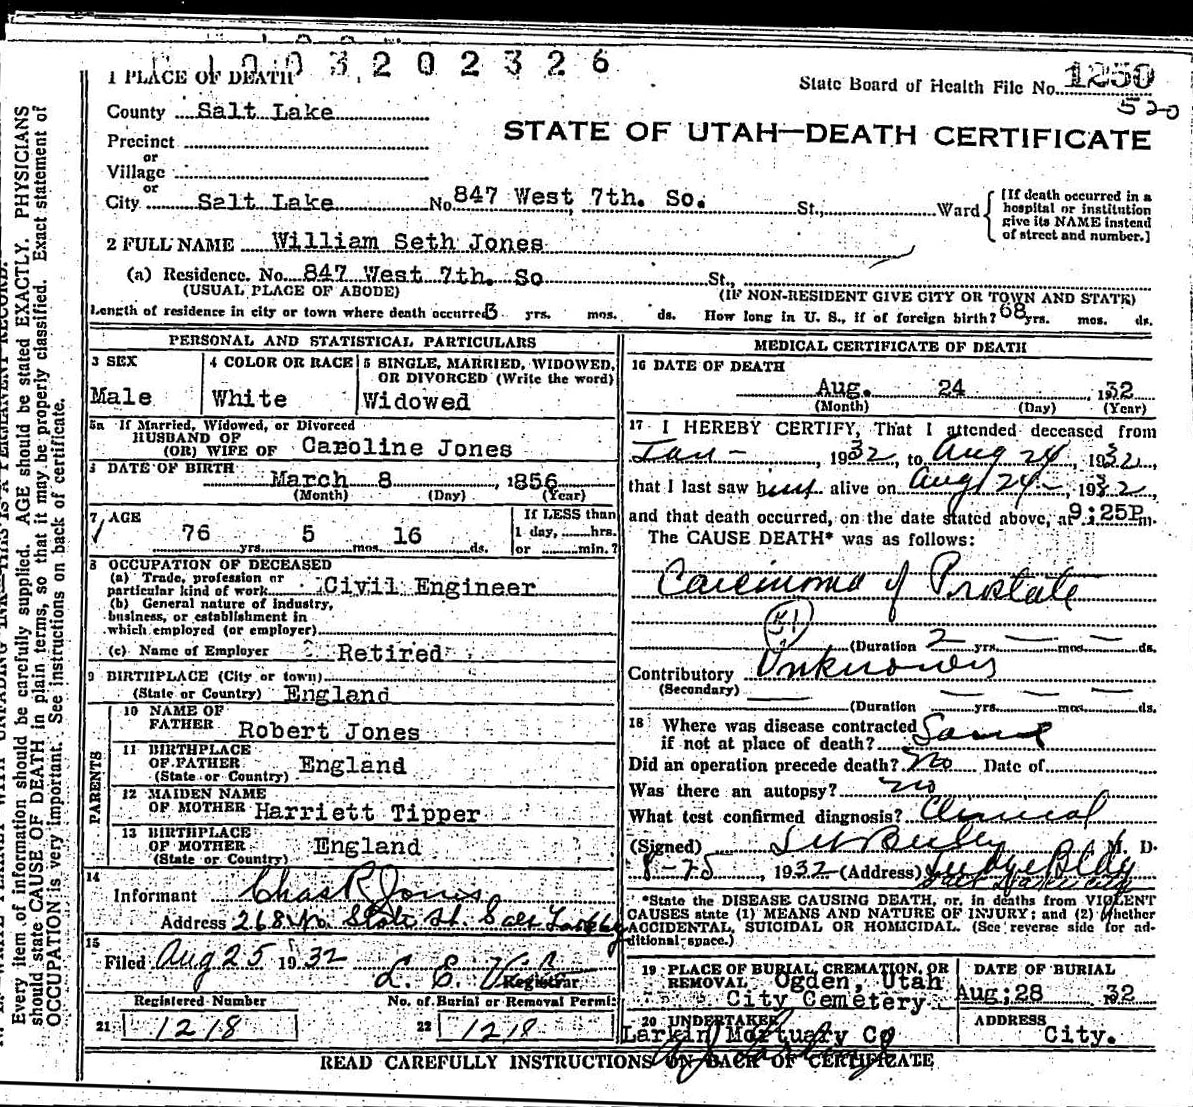 1003202326
1 PLACE OF DEATH
State Board of Health File No. 1250
520
County Salt Lake
STATE OF UTAH—DEATH CERTIFICATE
Precinct
or
Village
or
City Salt Lake No 847 West 7th. So. St., Ward
[If death occurred in a hospital or institution give its NAME instead of street and number.]
2 FULL NAME William Seth Jones
(a) Residence. No. 847 West 7th. So St.,
(USUAL PLACE OF ABODE) (IF NON-RESIDENT GIVE CITY OR TOWN AND STATE)
Length of residence in city or town where death occurred 3 yrs. mos. ds. How long in U. S., if of foreign birth? 68 yrs. mos. ds.
PERSONAL AND STATISTICAL PARTICULARS
3 SEX
Male
4 COLOR OR RACE
White
5 SINGLE, MARRIED, WIDOWED, OR DIVORCED (Write the word)
Widowed
5a If Married, Widowed, or Divorced
HUSBAND OF
(OR) WIFE OF Caroline Jones
DATE OF BIRTH
March 8, 1856
(Month) (Day) (Year)
7 AGE
76 yrs. 5 mos. 16 ds.
If LESS than
1 day, hrs.
or min.?
8 OCCUPATION OF DECEASED
(a) Trade, profession or
particular kind of work Civil Engineer
(b) General nature of industry,
business, or establishment in
which employed (or employer)
(c) Name of Employer Retired
9 BIRTHPLACE (City or town)
(State or Country) England
PARENTS
10 NAME OF
FATHER Robert Jones
11 BIRTHPLACE
OF FATHER England
(State or Country)
12 MAIDEN NAME
OF MOTHER Harriett Tipper
13 BIRTHPLACE
OF MOTHER England
(State or Country)
14
Informant Chas R Jones
Address 268 No. State St. Salt Lake City
15
Filed Aug 25 1932 L. E.
Registrar
Registered Number
21 1218
No. of Burial or Removal Permit
22 1218
MEDICAL CERTIFICATE OF DEATH
16 DATE OF DEATH
Aug. 24 1932
(Month) (Day) (Year)
17 I HEREBY CERTIFY, That I attended deceased from
Jan - , 1932, to Aug 24, 1932,
that I last saw him alive on Aug 24 -, 1932,
and that death occurred, on the date stated above, at 9:25P m.
The CAUSE DEATH* was as follows:
Carcinoma of Prostate
51
(Duration 2 yrs. — mos. — ds.
Contributory Unknown
(Secondary)
(Duration — yrs. — mos. — ds.
18 Where was disease contracted
if not at place of death? Same
Did an operation precede death? No Date of
Was there an autopsy? no
What test confirmed diagnosis? Clinical
(Signed) M. D.
8-25, 1932 (Address) Judge Bldg
Salt Lake City
*State the DISEASE CAUSING DEATH, or, in deaths from VIOLENT
CAUSES state (1) MEANS AND NATURE OF INJURY; and (2) whether
ACCIDENTAL, SUICIDAL OR HOMICIDAL. (See reverse side for ad-
ditional space.)
19 PLACE OF BURIAL, CREMATION, OR
REMOVAL Ogden, Utah
City Cemetery
DATE OF BURIAL
Aug; 28 1932
20 UNDERTAKER
Larkin Mortuary Co
ADDRESS
City.
READ CAREFULLY INSTRUCTIONS ON BACK OF CERTIFICATE
Every item of information should be carefully supplied. AGE should be stated EXACTLY. PHYSICIANS
should state CAUSE OF DEATH in plain terms, so that it may be properly classified. Exact statement of
OCCUPATION is very important. See instructions on back of certificate.